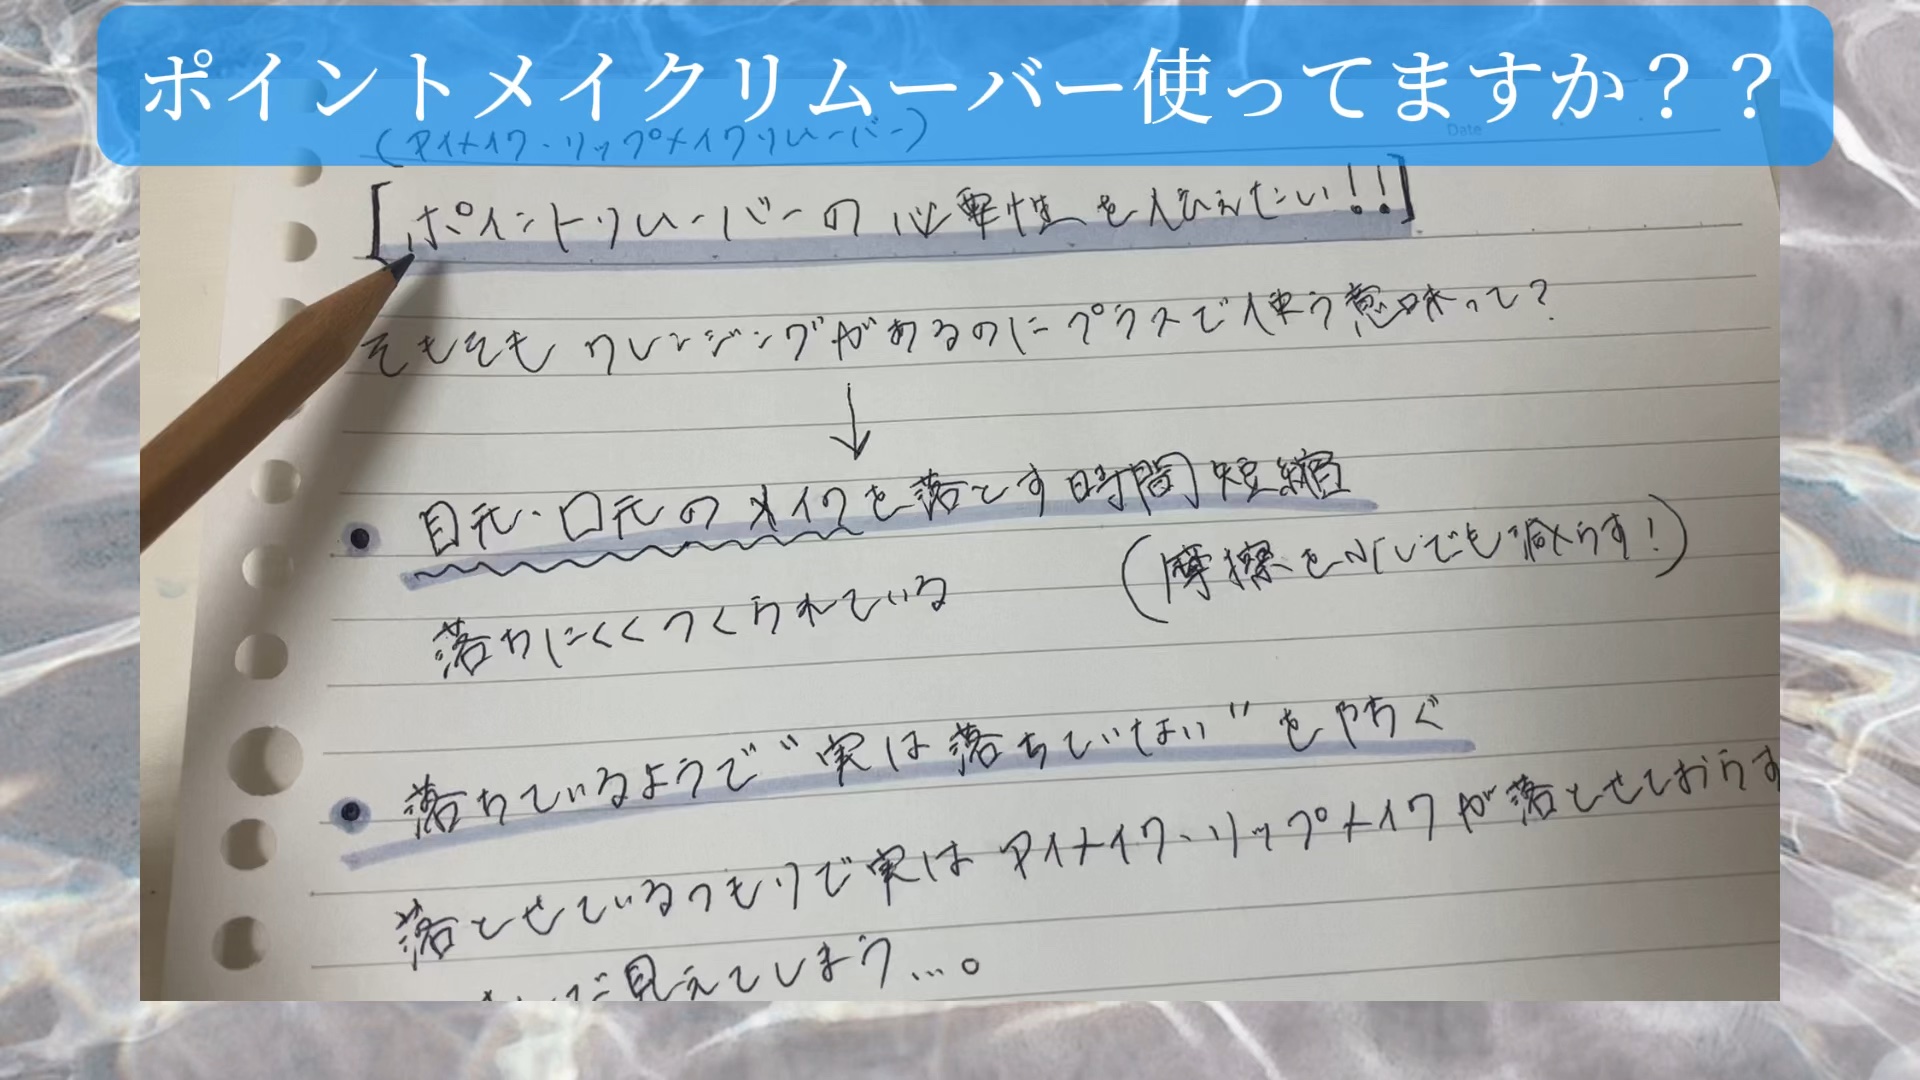 ポイントメイクリムーバー使ってますか？？
(アイメイク・リップメイクリムーバー)
Date
[ポイントリムーバーの必要性を伝えたい!!]
そもそもクレンジングがあるのにプラスで使う意味って?
↓
●目元・口元のメイクを落とす時間短縮
(摩擦を少しでも減らす!)
落ちにくくつくられている
●落ちているようで"実は落ちていない"をやちぐ
落とせているつもりで実はアイメイク・リップメイクが落とせておらす
見えてしまう...。